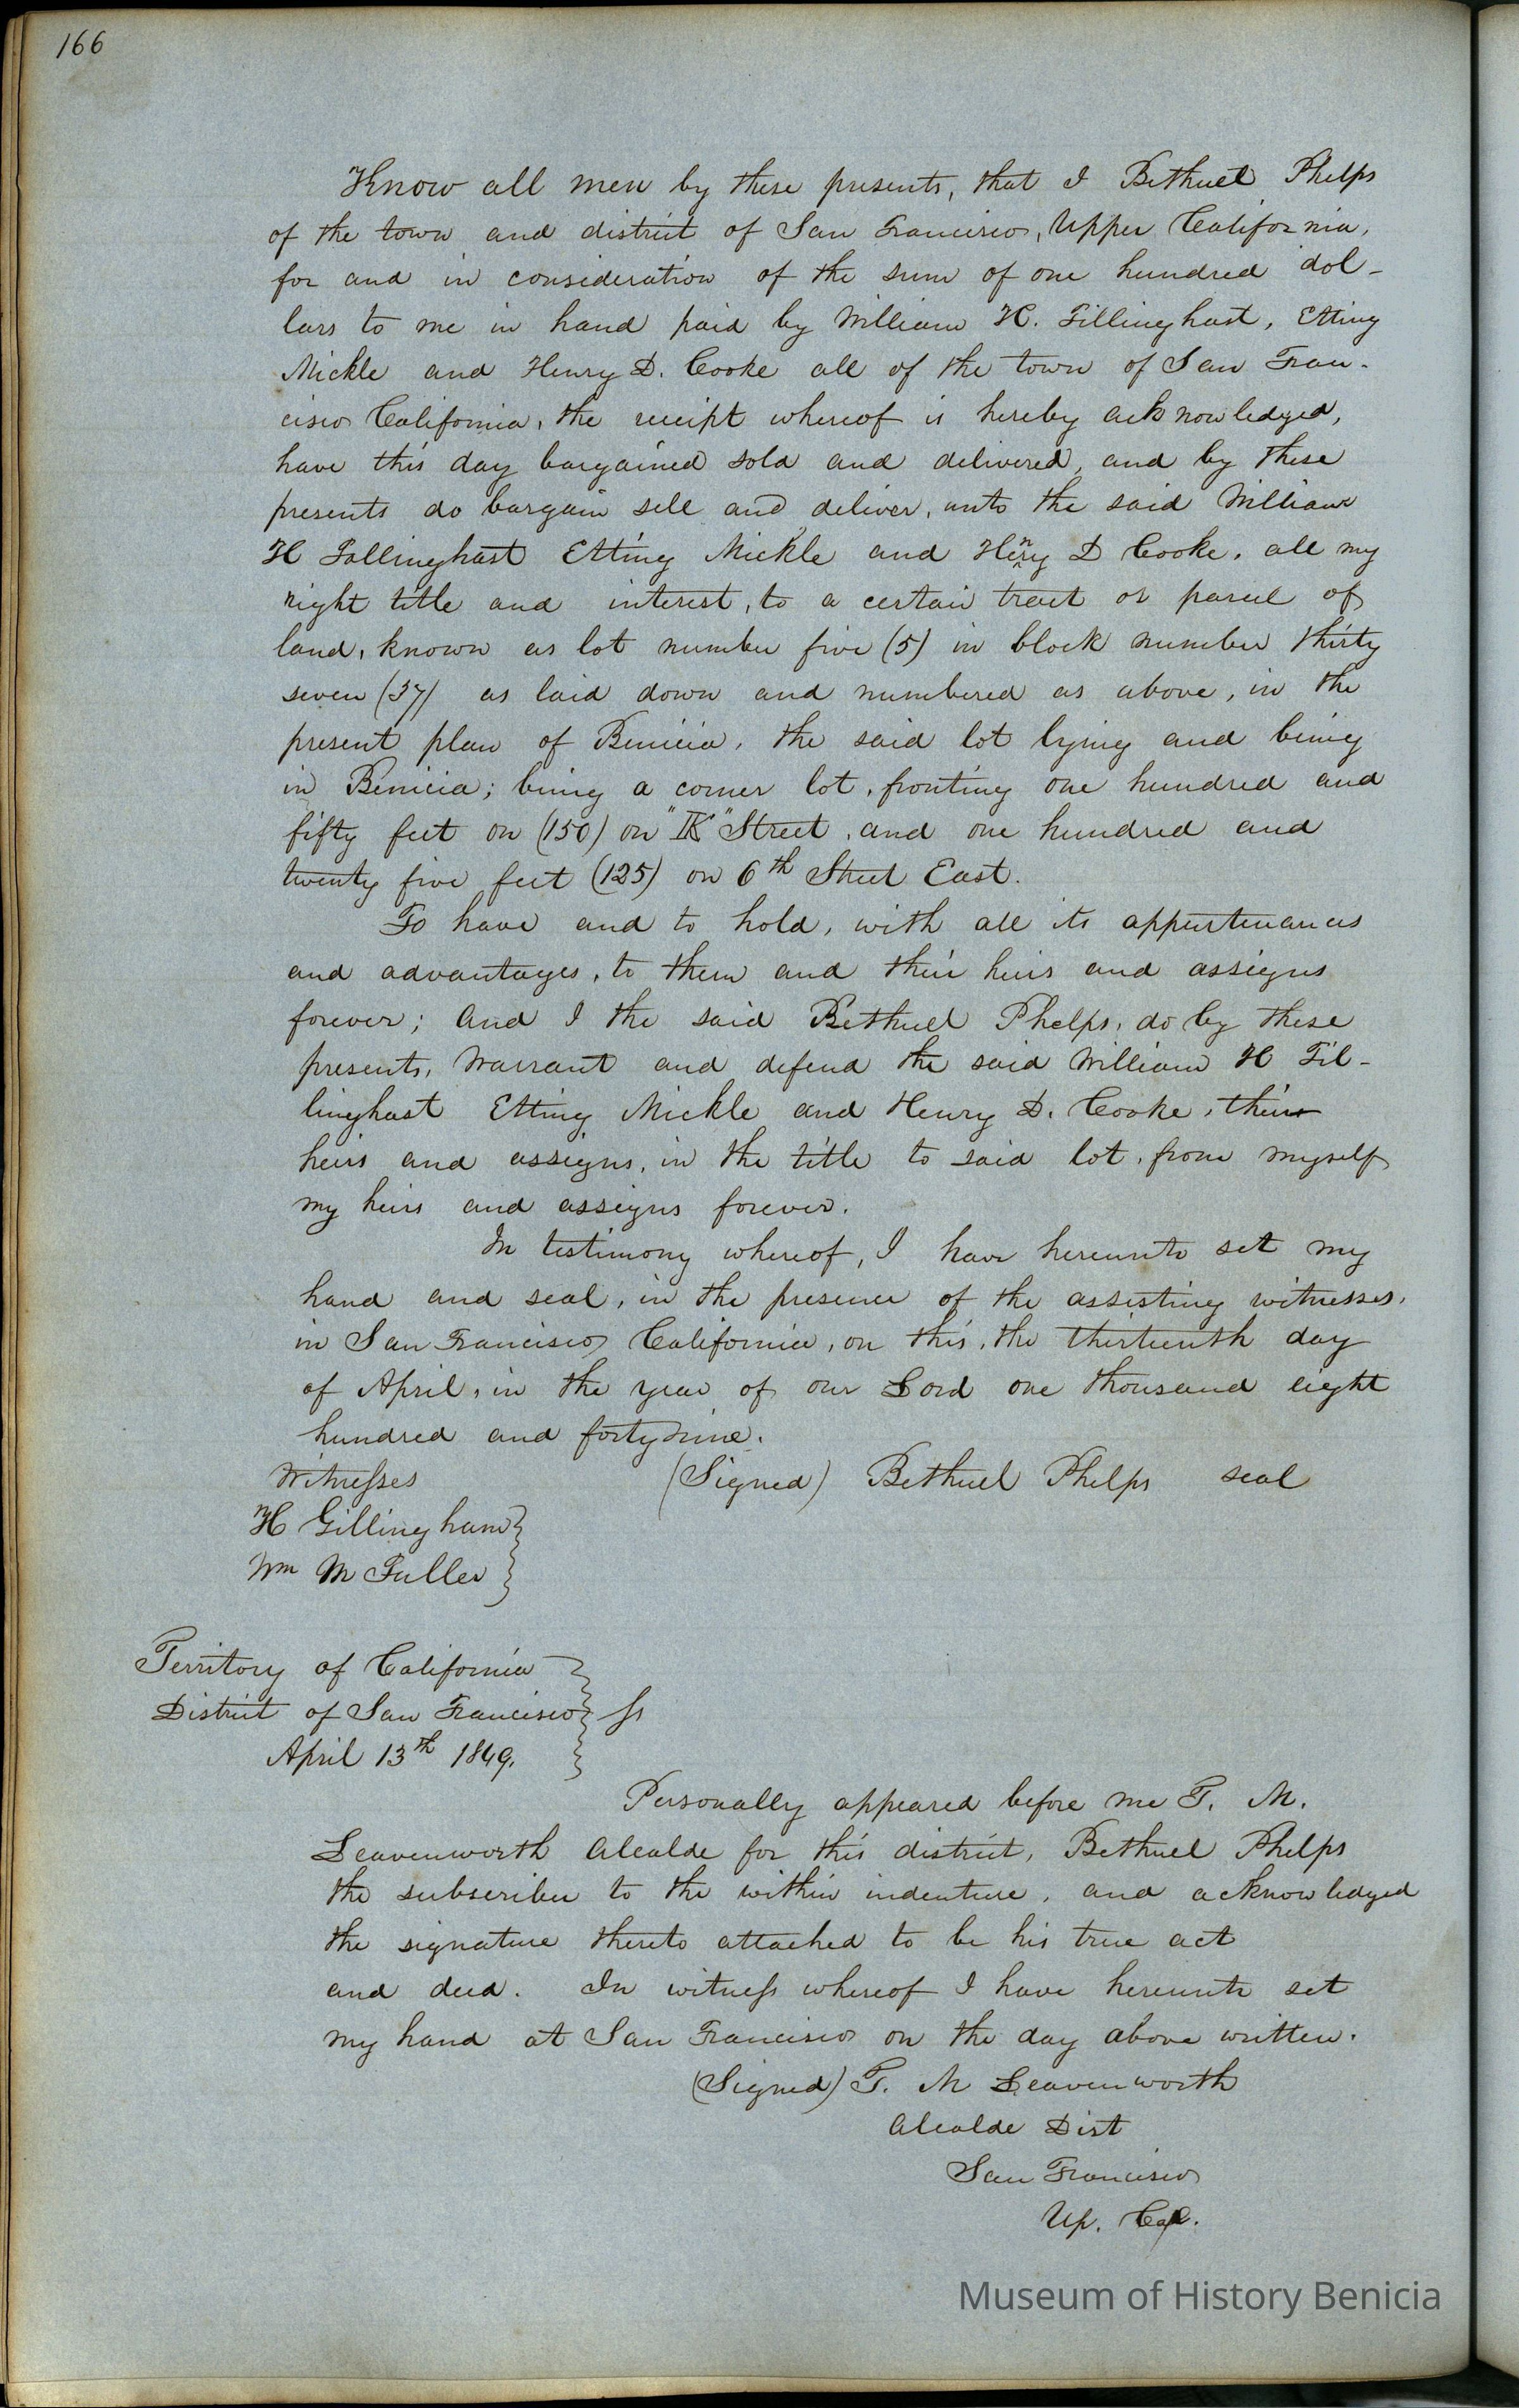 166
Know all men by these presents, that I Bethuel Phelps
of the town and district of San Francisco, Upper California,
for and in consideration of the sum of one hundred dol-
lars to me in hand paid by William H. Tillinghast, Etting
Mickle and Henry D. Cooke all of the town of San Fran-
cisco California, the receipt whereof is hereby acknowledged,
have this day bargained sold and delivered, and by these
presents do bargain sell and deliver, unto the said William
H Tollinghast Etting Mickle and Henry D Cooke, all my
right title and interest, to a certain tract or parcel of
land, known as lot number five (5) in block number thirty
seven (37) as laid down and numbered as above, in the
present plan of Benicia, the said lot lying and being
in Benicia; being a corner lot, fronting one hundred and
fifty feet on (150) on "K" Street, and one hundred and
twenty five feet (125) on 6th Street East.
To have and to hold, with all its appurtenances
and advantages, to them and their heirs and assigns
forever; and I the said Bethuel Phelps, do by these
presents, Warrant and defend the said William H Til-
linghast Etting Mickle and Henry D. Cooke, their
heirs and assigns, in the title to said lot, from myself
my heirs and assigns forever.
In testimony whereof, I have hereunto set my
hand and seal, in the presence of the assisting witnesses,
in San Francisco California, on this, the thirteenth day
of April, in the year of our Lord one thousand eight
hundred and forty nine.
Witnesses (Signed) Bethuel Phelps seal
H Gillingham
Wm M Fuller
Territory of California
District of San Francisco ss
April 13th 1849.
Personally appeared before me T. M.
Leavenworth Alcalde for this district, Bethuel Phelps
the subscriber to the within indenture, and acknowledged
the signature thereto attached to be his true act
and deed. In witness whereof I have hereunto set
my hand at San Francisco on the day above written.
(Signed) T. M Leavenworth
Alcalde Dist
San Francisco
Up. Cal.
Museum of History Benicia